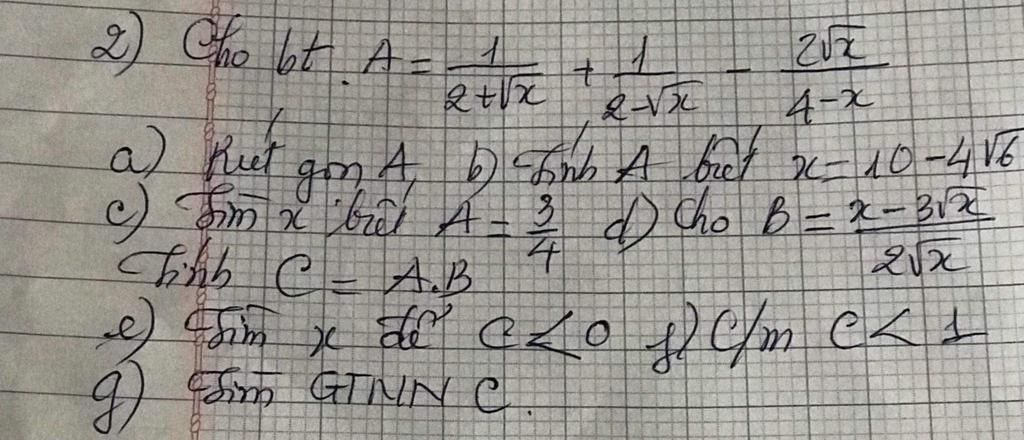 2) Cho bt. A = 1/(2+√x) + 1/(2-√x) - 2√x/(4-x)
a) Rút gọn A, b) Tính A biết x = 10 - 4√6
c) Tìm x biết A = 3/4 d) Cho B = (x-3√x)/(2√x)
Tính C = A.B
e) Tìm x để C < 0 f) C/m C < 1
g) Tìm GTNN C.